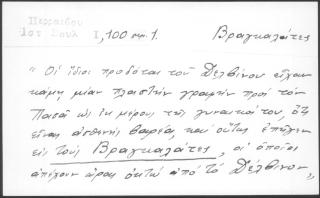 Περραιβού
Ιστ Σουλ I, 100 σημ. 1.
Βραγκαλάτες
"Οἱ ἴδιοι προδόται τοῦ Δελβίνου εἶχαν
κάμῃ μίαν πλαστὴν γραφὴν πρὸς τὸν
Πασᾶ ὡς ἐκ μέρους τῆς γυναικός του, ὅτι
εἶναι ἀσθενὴς βαρέα, καὶ οὕτως
εἰς τοὺς Βραγκαλάτες, οἱ ὁποῖοι
ἀπέχουν ὥρας ὀκτὼ ἀπὸ τὸ Δέλβινον,